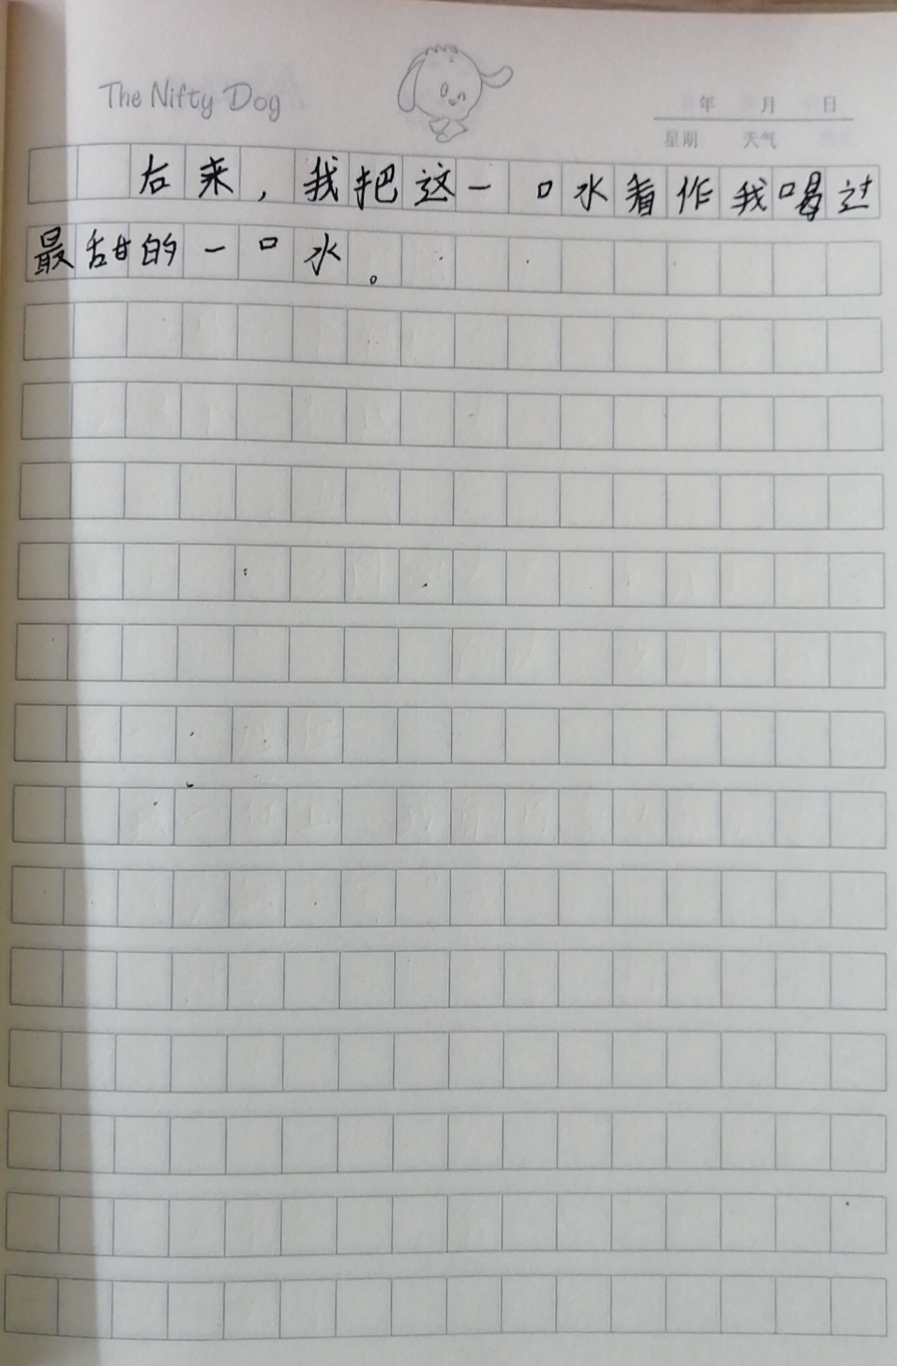 The Nifty Dog
年 月 日
星期 天气
右来，我把这一口水看作我喝过
最甜的一口水。